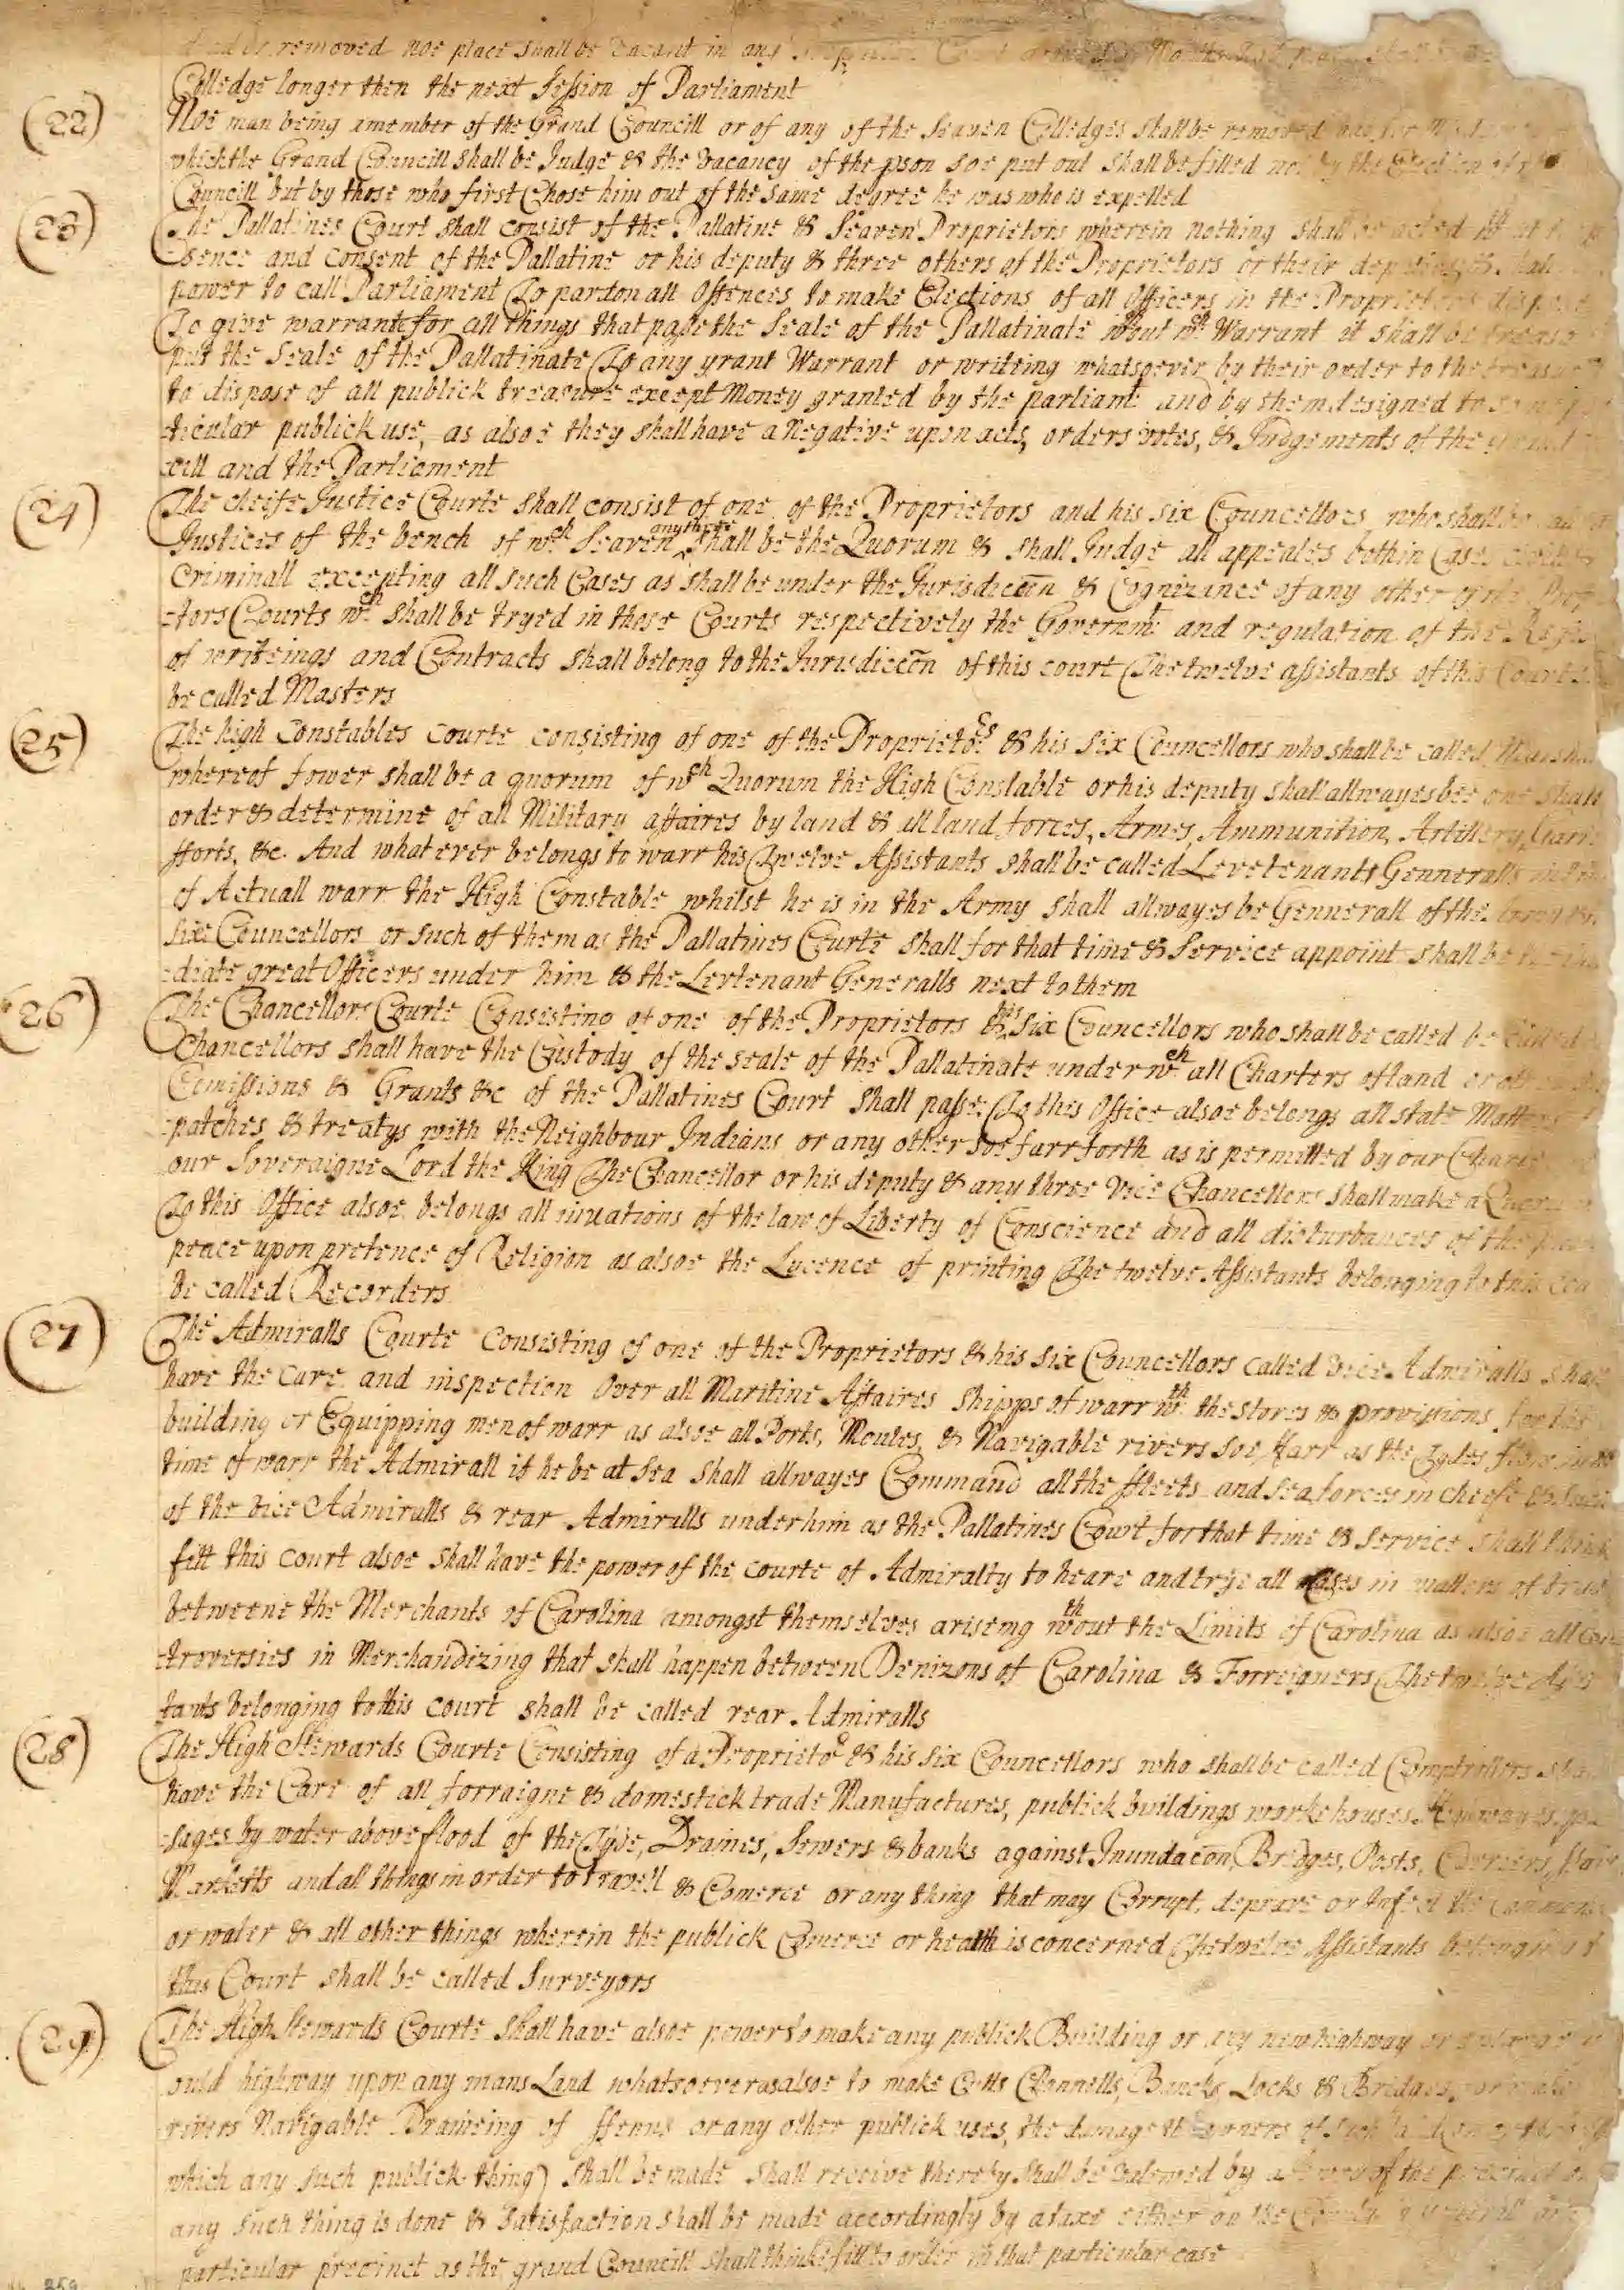 removed noe place shall be vacant in any
Colledge longer then the next Session of Parliament
(22) Noe man being a member of the Grand Councill or of any of the Seaven Colledges shall be removed
which the Grand Councill shall be Judge & the vacancy of the pson soe put out shall be filled not by the Election of
Councill but by those who first Chose him out of the same degree he was who is expelled
(23) The Pallatines Court shall consist of the Pallatine & Seaven Proprietors wherein nothing shall be acted
sence and Consent of the Pallatine or his deputy & three others of the Proprietors or their deputies & shall
power to call Parliament To pardon all Offences to make Elections of all Officers in the Proprietors
To give warrants for all things that passe the Seale of the Pallatinate wthout wch Warrant it shall be
put the Seale of the Pallatinate To any grant Warrant or writeing whatsoever by their order to the
to dispose of all publick treasure except Money granted by the parliamt and by them designed to
ticular publick use, as alsoe they shall have a Negative upon acts, orders votes, & Judgements of the
cill and the Parliament
(24) The cheife Justice Courte shall consist of one of the Proprietors and his six Councellors who shall be
Justices of the bench of wch Seaven any three shall be the Quorum & shall Judge all appeales both in Cases
Criminall excepting all such Cases as shall be under the Jurisdiccon & Cognizance of any other of the
tors Courts wch shall be tryed in those Courts respectively the Governmt and regulation of the
of writeings and Contracts shall belong to the Jurisdiccon of this court The twelve assistants of this Courte
be called Masters
(25) The high Constables Courte consisting of one of the Proprietors & his six Councellors who shall be called
whereof fower shall be a quorum of wch Quorum the High Constable or his deputy shall allwayes bee one shall
order & determine of all Military affaires by land & all land forces, Armes, Ammunition, Artillery,
fforts, &c. And what ever belongs to warr his Twelve Assistants shall be called Levetenants Genneralls
of Actuall warr the High Constable whilst he is in the Army shall allwayes be Gennerall of the
six Councellors or such of them as the Pallatines Courte shall for that time & Service appoint shall be
diate great Officers under him & the Levtenant Generalls next to them
(26) The Chancellors Courte Consisting of one of the Proprietors & his Six Councellors who shall be called be called
Chancellors shall have the Custody of the seale of the Pallatinate under wch all Charters of land or
Comissions & Grants &c of the Pallatines Court Shall passe. To this Office alsoe belongs all state Matters
patches & treatys with the Neighbour Indians or any other soe farr forth as is permitted by our Charter
our Soveraigne Lord the King The Chancellor or his deputy & any three Vice Chancellors shall make a Quorum
To this Office alsoe belongs all invations of the law of Liberty of Conscience and all disturbances of the
peace upon pretence of Religion as alsoe the Lycence of printing The twelve Assistants belonging to this
be called Recorders
(27) The Admiralls Courte Consisting of one of the Proprietors & his six Councellors called vice Admiralls shall
have the Care and inspection Over all Maritine Affaires Shipps of warr wth the stores & provissions for the
building or Equipping men of warr as alsoe all Ports, Moules, & Navigable rivers soe ffarr as the Tydes flow in
time of warr the Admirall if he be at Sea Shall allwayes Command all the ffleets and Sea forces in cheefe &
of the vice Admiralls & rear Admiralls under him as the Pallatines Court for that time & Service shall think
fitt this Court alsoe shall have the power of the courte of Admiralty to heare and trye all Cases in matters of
betweene the Merchants of Carolina amongst themselves ariseing wthout the Limits of Carolina as alsoe all con
troversies in Merchandizing that shall happen between Denizons of Carolina & Forreigners The twelve
tants belonging to this court shall be called rear Admiralls
(28) The High Stewards Courte Consisting of a Proprietor & his six Councellors who shall be called Comptrollers
have the Care of all forraigne & domestick trade Manufactures, publick buildings workehouses, Highwayes,
sages by water above flood of the Tyde, Draines, Sewers & banks against Inundacon, Bridges, Posts,
Marketts and all things in order to travell & Comerce or any thing that may Corrupt, deprave or Infect the
or water & all other things wherein the publick Comerce or health is concerned The twelve Assistants
this Court shall be called Surveyors
(29) The High Stewards Courte Shall have alsoe power to make any publick Building or any new highway or
ould highway upon any mans Land whatsoever as alsoe to make Cutts Channells, Bancks, Locks & Bridges,
rivers Navigable Draineing of ffenns or any other publick uses, the damage the owners of such
which any such publick thing) shall be made shall receive thereby Shall be valewed by
any such thing is done & Satisfaction shall be made accordingly by a taxe either on the
particular precinct as the grand Councill shall thinke fitt to order in that particular case